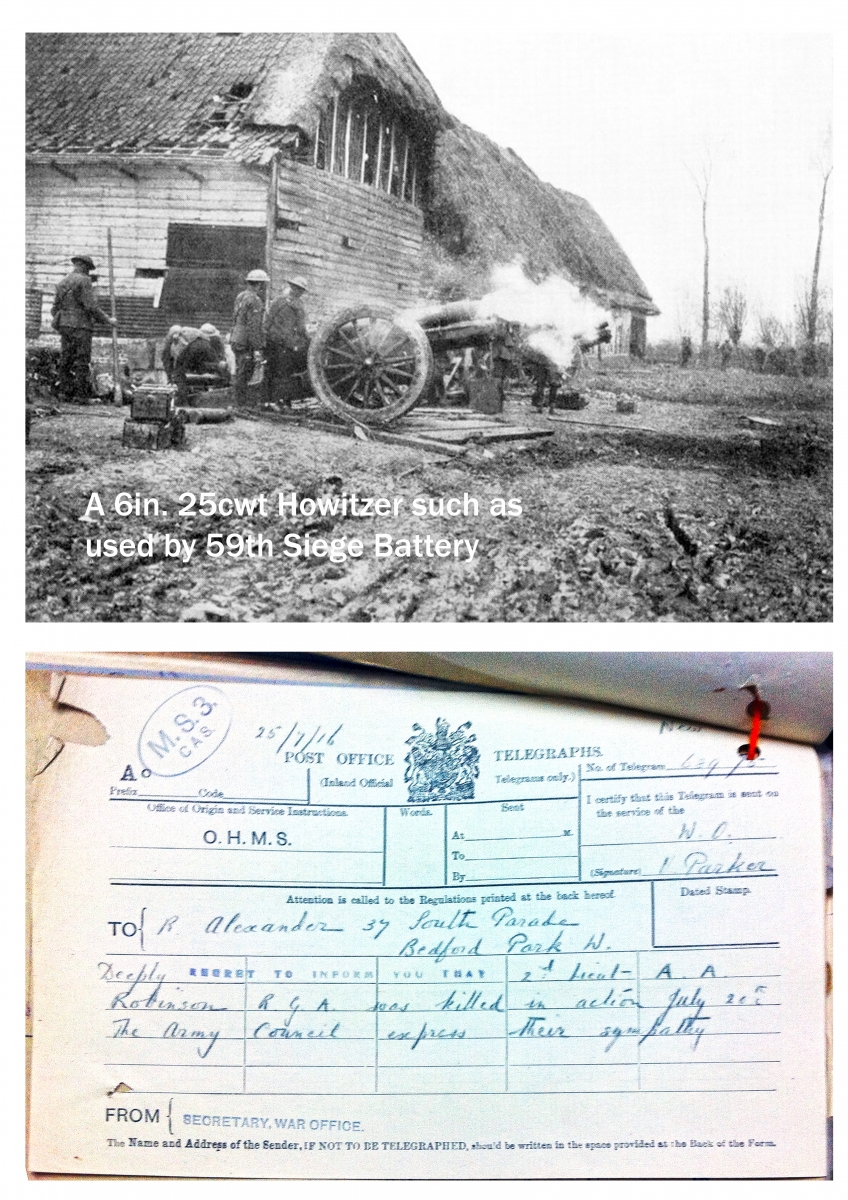 A 6in. 25cwt Howitzer such as
used by 59th Siege Battery
M.S.3.
CAS.
25/7/16
POST OFFICE TELEGRAPHS.
(Inland Official Telegrams only.)
No. of Telegram
A.
Prefix Code
Office of Origin and Service Instructions.
O.H.M.S.
Words.
Sent
At M.
To
By
I certify that this Telegram is sent on
the service of the
W. O.
(Signature) Parker
Attention is called to the Regulations printed at the back hereof.
Dated Stamp.
TO R. Alexander 37 South Parade
Bedford Park W.
Deeply REGRET TO INFORM YOU THAT 2d Lieut- A. A.
Robinson R G A. was killed in action July
The Army Council express their sympathy
FROM SECRETARY, WAR OFFICE.
The Name and Address of the Sender, IF NOT TO BE TELEGRAPHED, should be written in the space provided at the Back of the Form.